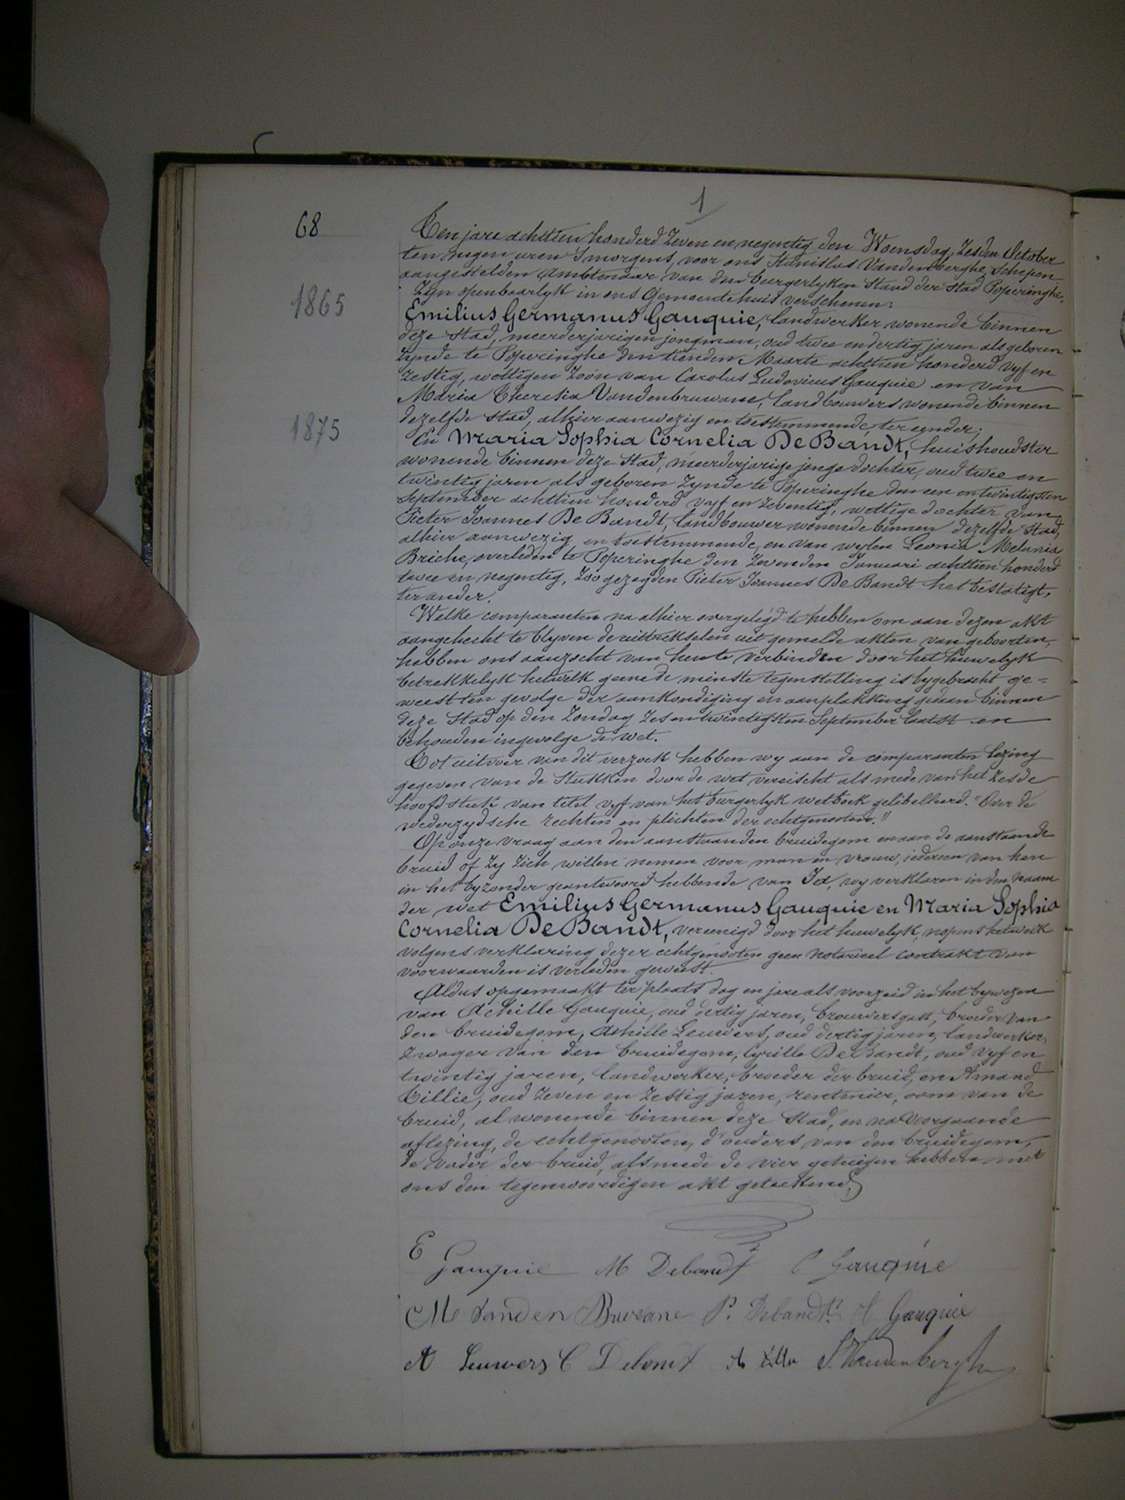 1
68
Ten jare achttien honderd zeven en negentig den Woensdag, zesden October
ten negen uren 's morgens, voor ons Stanislas Vandenberghe, schepen
aangestelden Ambtenaar van den burgerlyken stand der stad Poperinghe,
zyn openbaarlyk in ons Gemeentehuis verschenen:
1865
Emilius Germanus Gauquie, landwerker wonende binnen
deze stad, meerderjarigen jongman, oud twee en dertig jaren als geboren
zynde te Poperinghe den tienden Maarte achttien honderd vyf en
zestig, wettigen zoon van Carolus Ludovicus Gauquie en van
Maria Theresia Vandenbruwane, landbouwers wonende binnen
dezelfde stad, alhier aanwezig en toestemmende ter eender;
1875
En Maria Sophia Cornelia De Bandt, huishoudster
wonende binnen deze stad, meerderjarige jonge dochter, oud twee en
twintig jaren als geboren zynde te Poperinghe den een en twintigsten
September achttien honderd vyf en zeventig, wettige dochter van
Pieter Joannes De Bandt, landbouwer wonende binnen dezelfde stad,
alhier aanwezig en toestemmende, en van wylen Leonia Melania
Briche, overleden te Poperinghe den zevenden Januari achttien honderd
twee en negentig, zoo gezegden Pieter Joannes De Bandt het bestatigt,
ter ander.
Welke comparanten na alhier overgelegd te hebben om aan dezen akt
aangehecht te blyven de uittrekselen uit gemelde akten van geboorten,
hebben ons aanzocht van hen te verbinden door het huwelyk
betrekkelyk hetwelk geene de minste tegenstelling is bygebracht ge-
weest ten gevolge der aankondiging en aanplakking gedaan binnen
deze stad op den Zondag zes en twintigsten September laatst en
behouden ingevolge de wet.
Tot uitvoer van dit verzoek hebben wy aan de comparanten lezing
gegeven van de stukken door de wet vereischt als mede van het zesde
hoofdstuk van titel vyf van het burgerlyk wetboek gelibelleerd. "Over de
wederzydsche rechten en plichten der echtgenooten."
Op onze vraag aan den aanstaanden bruidegom en aan de aanstaande
bruid of zy zich willen nemen voor man en vrouw, iedereen van hen
in het byzonder geantwoord hebbende van Ja, wy verklaren in den naam
der wet Emilius Germanus Gauquie en Maria Sophia
Cornelia De Bandt, vereenigd door het huwelyk, nopens hetwelk
volgens verklaring dezer echtgenooten geen notarieel contrakt van
voorwaarden is verleden geweest.
Aldus opgemaakt ter plaats dag en jare als voorzeid in het bywezen
van Achille Gauquie, oud dertig jaren, brouwersgast, broeder van
den bruidegom, Achille Leuwers, oud dertig jaren, landwerker,
zwager van den bruidegom, Cyrille De Bandt, oud vyf en
twintig jaren, landwerker, broeder der bruid, en Amand
Tillie, oud zeven en zestig jaren, rentenier, oom van de
bruid, al wonende binnen deze stad, en na voorgaande
aflezing, de echtgenooten, d'ouders van den bruidegom,
de vader der bruid, alsmede de vier getuigen hebben met
ons den tegenwoordigen akt geteekend.
E Gauquie M Debandt C Gauquie
M t Vanden Bruwane P. Debandt A Gauquie
A Leuwers C Debandt A Tillie S. Vandenberghe